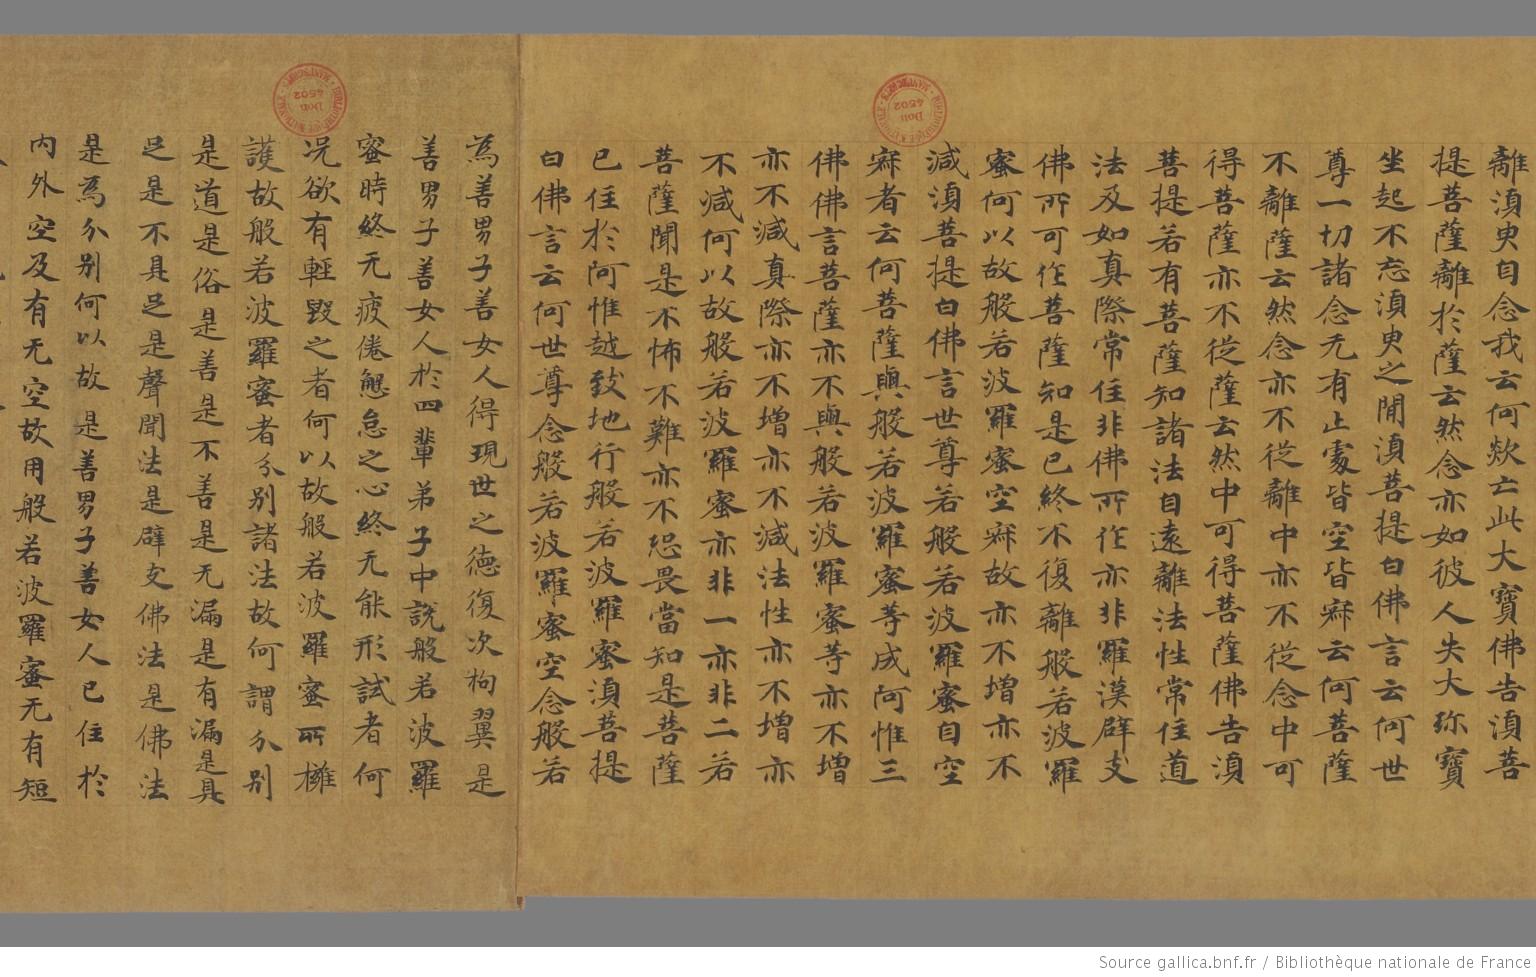 離湏㬰自念我云何欻亡此大寶佛告湏菩
提菩薩離於薩云然念亦如彼人失大珎寶
坐起不忘湏㬰之閒湏菩提白佛言云何世
尊一切諸念无有止䖏皆空皆㝛云何菩薩
不離薩云然念亦不從離中亦不從念中可
得菩薩亦不從薩云然中可得菩薩佛告湏
菩提若有菩薩知諸法自遠離法性常住道
法及如真際常住非佛所作亦非羅漢辟支
佛所可作菩薩知是已終不復離般若波羅
蜜何以故般若波羅蜜空㝛故亦不增亦不
減湏菩提白佛言世尊若般若波羅蜜自空
㝛者云何菩薩與般若波羅蜜等成阿惟三
佛佛言菩薩亦不與般若波羅蜜等亦不增
亦不減真際亦不增亦不減法性亦不增亦
不減何以故般若波羅蜜亦非一亦非二若
菩薩聞是不怖不難亦不恐畏當知是菩薩
已住於阿惟越致地行般若波羅蜜湏菩提
白佛言云何世尊念般若波羅蜜空念般若
為善男子善女人得現世之德復次拘翼是
善男子善女人於四輩弟子中說般若波羅
蜜時終无疲倦懈怠之心終无能形試者何
況欲有輕毀之者何以故般若波羅蜜所擁
護故般若波羅蜜者分別諸法故何謂分別
是道是俗是善是不善是无漏是有漏是具
足是不具足是聲聞法是辟支佛法是佛法
是為分別何以故是善男子善女人已住於
內外空及有无空故用般若波羅蜜无有短
Source gallica.bnf.fr / Bibliothèque nationale de France